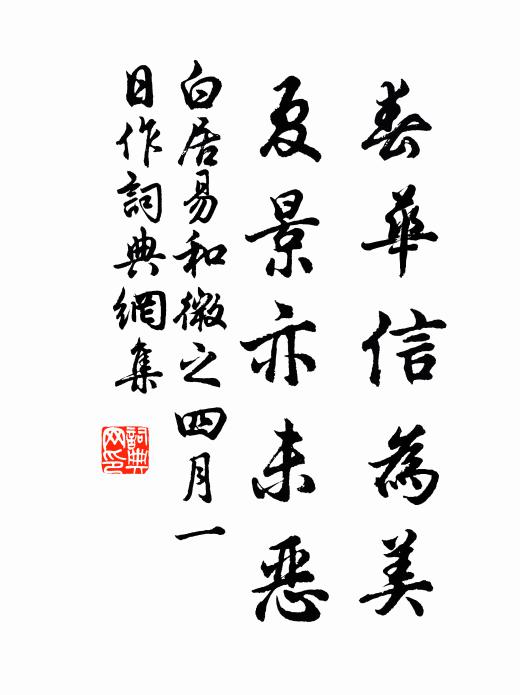 春華信為美
夏景亦未惡
白居易和微之四月一
日作詞典網集
詞典网印